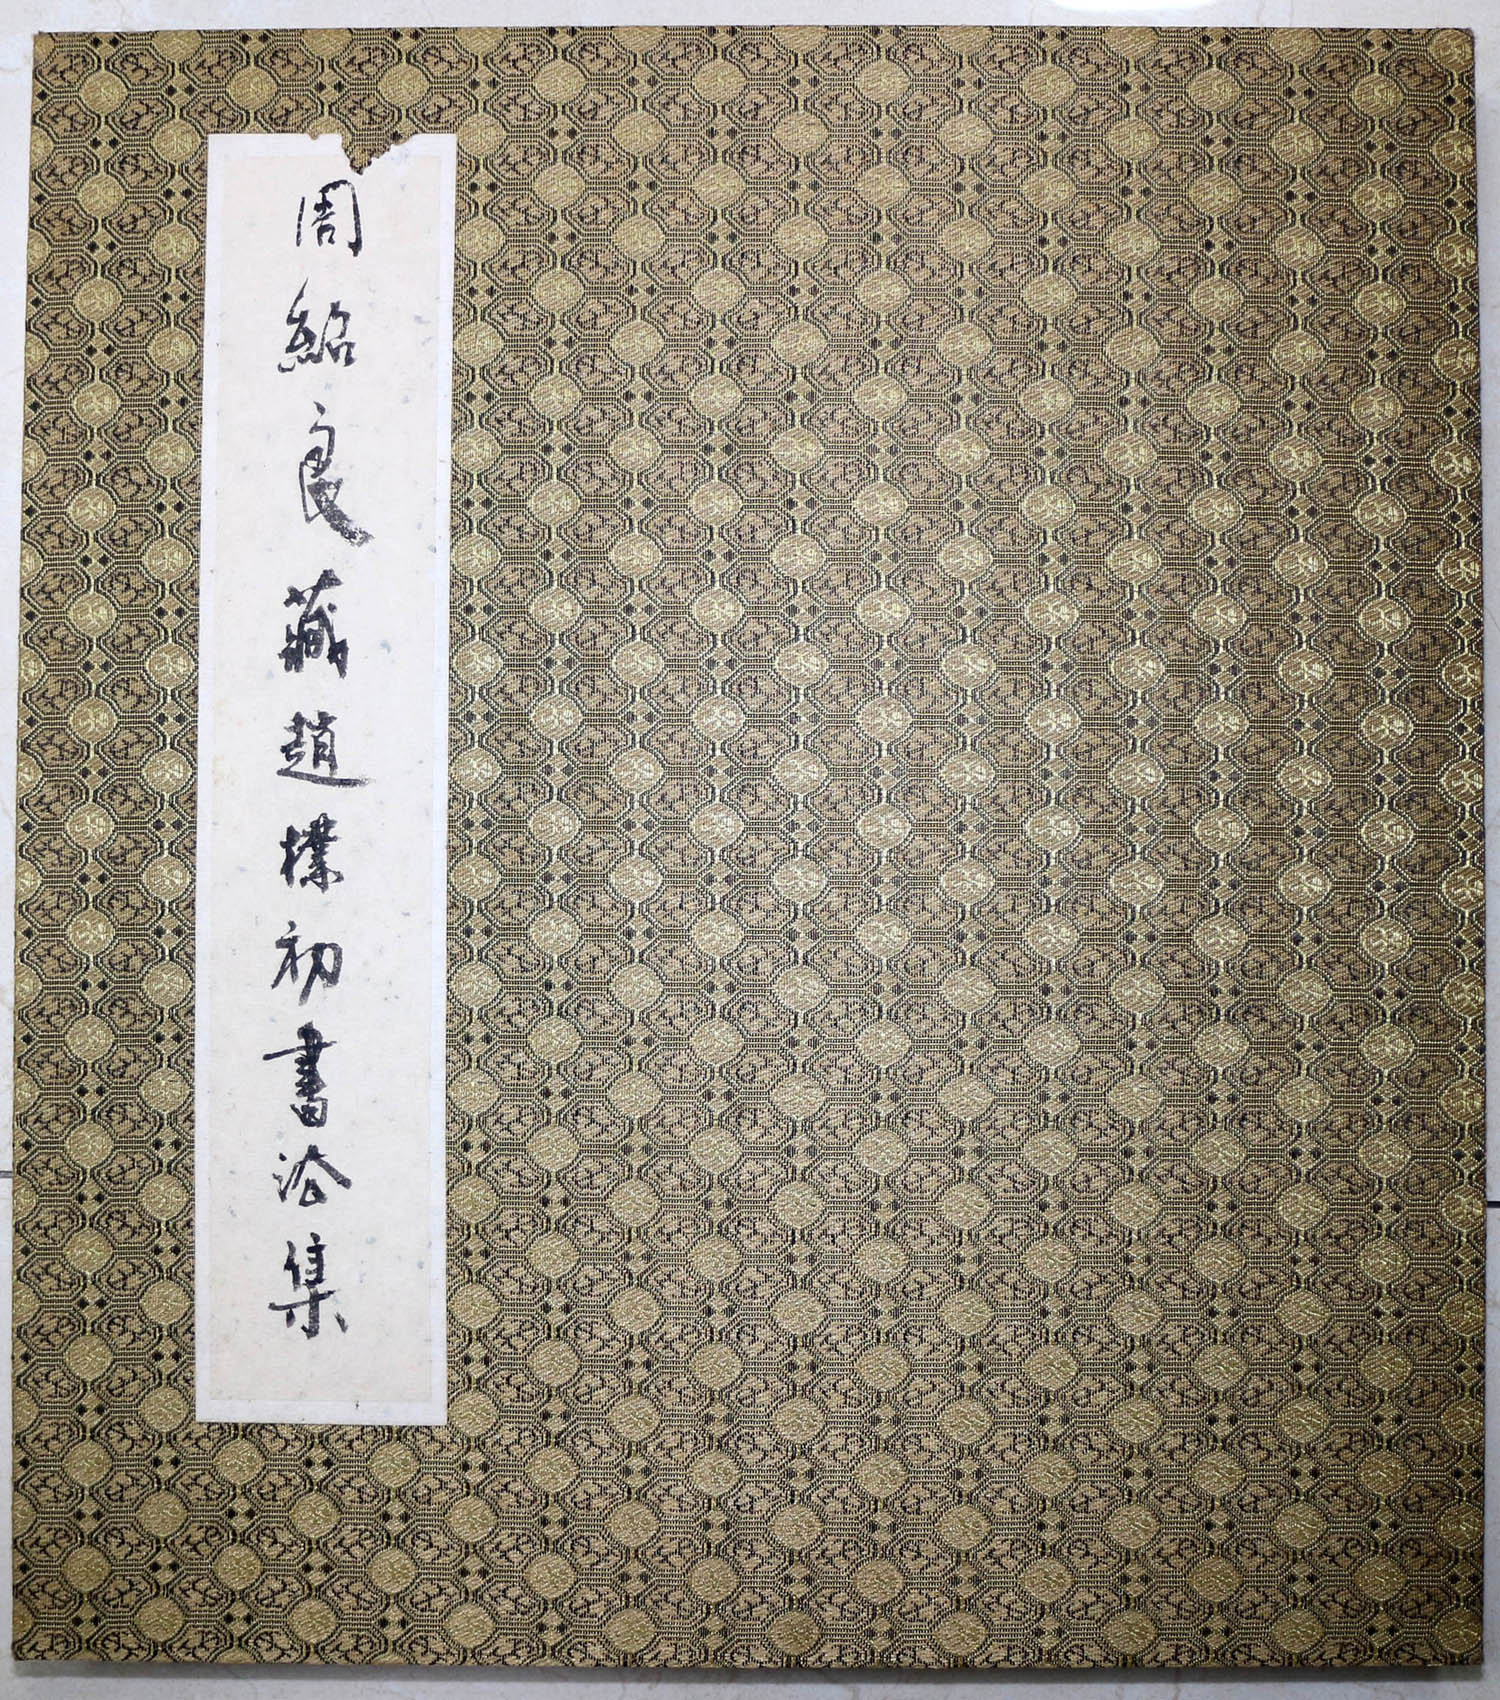 周紹良藏趙樸初書法集